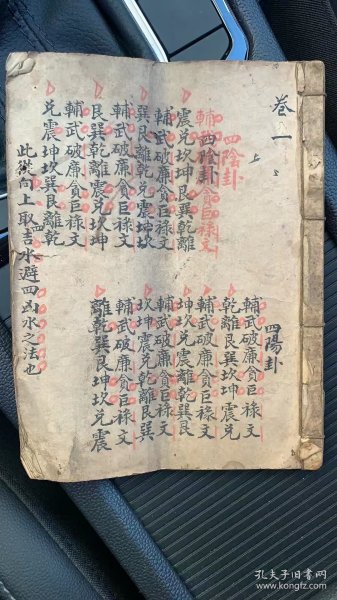 卷一
上
四陰卦
四陰卦
震兌坎坤艮巽乾離
輔武破廉貪巨祿文
巽艮離乾兌震坤坎
輔武破廉貪巨祿文
艮巽乾離震兌坎坤
輔武破廉貪巨祿文
兌震坤坎巽艮離乾
此從向上取四吉水避四凶水之法也
四陽卦
輔武破廉貪巨祿文
乾離艮巽坎坤震兌
輔武破廉貪巨祿文
坤坎兌震離乾巽艮
輔武破廉貪巨祿文
坎坤震兌乾離艮巽
輔武破廉貪巨祿文
離乾巽艮坤坎兌震
孔夫子旧书网
www.kongfz.com